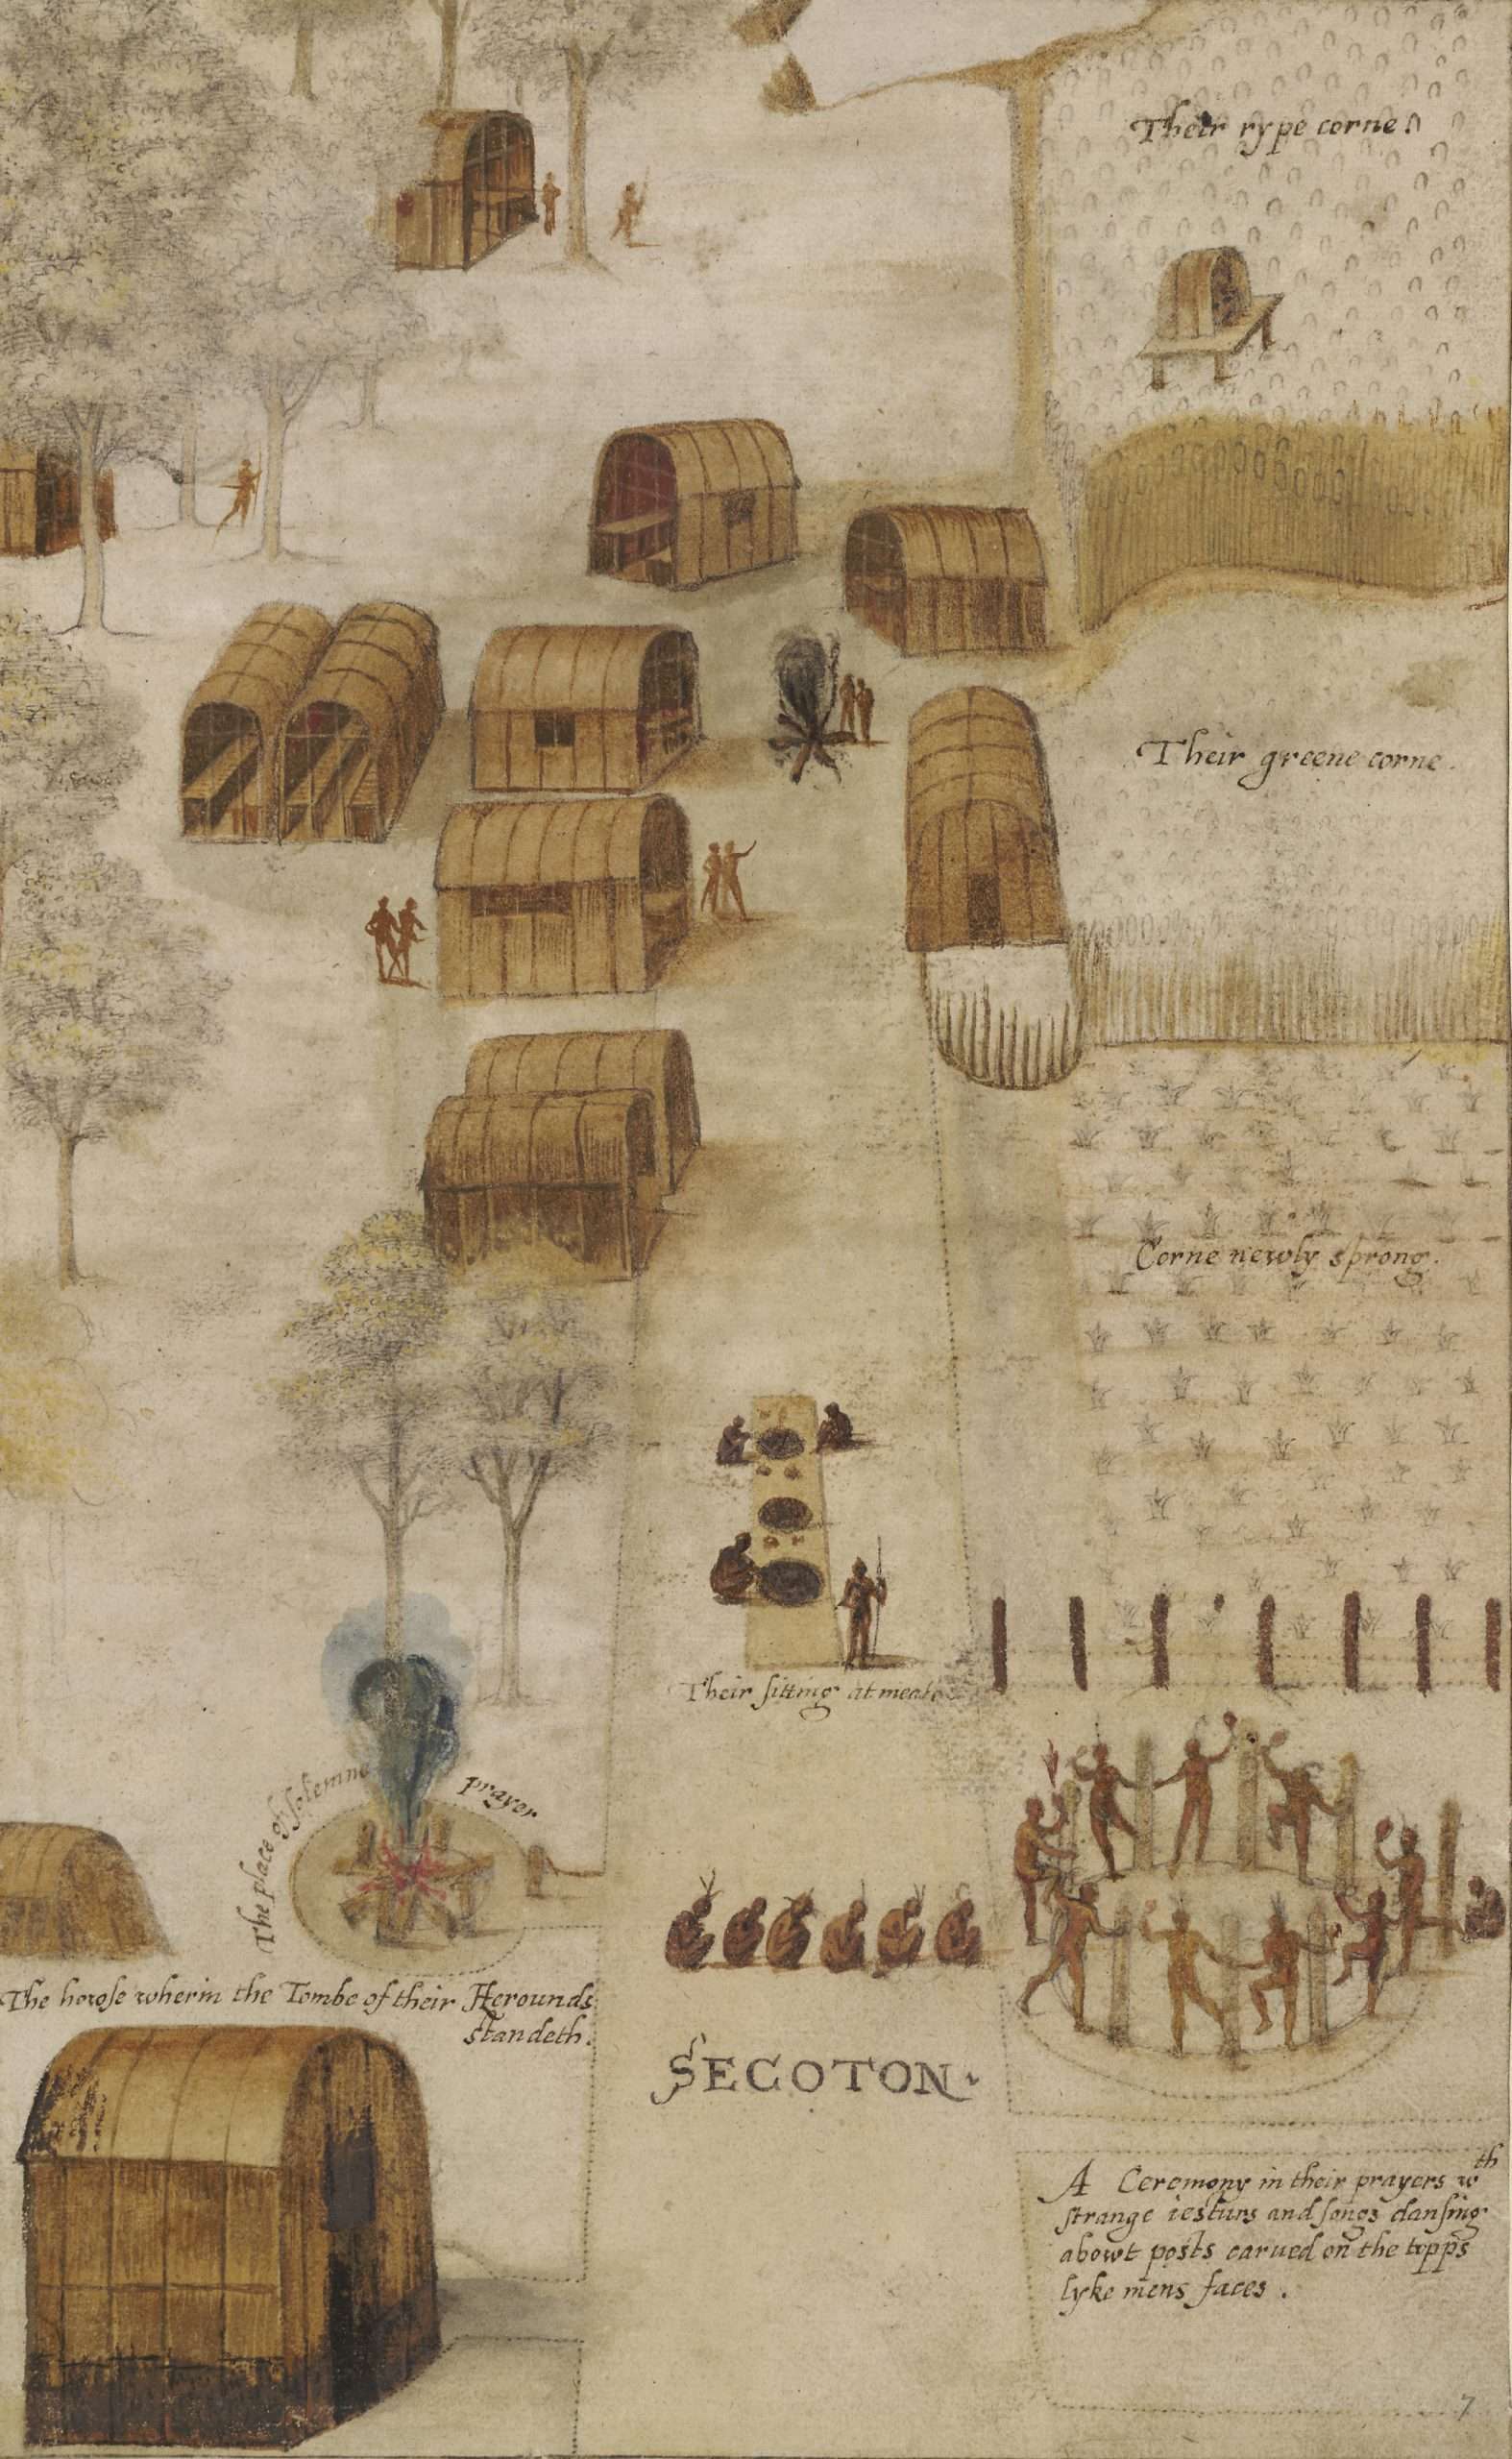 Their rype corne.
Their greene corne.
Corne newly sprong.
Their sitting at meate
The place of solemne prayer
The howse wherin the Tombe of their Herounds
standeth.
SECOTON.
A Ceremony in their prayers wth
strange iesturs and songs dansing
abowt posts carued on the topps
lyke mens faces.
7